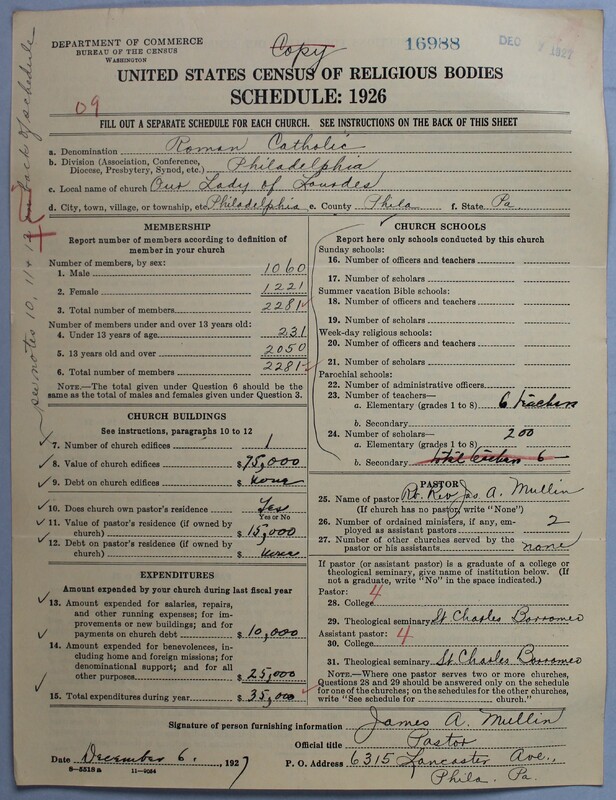 DEPARTMENT OF COMMERCE
BUREAU OF THE CENSUS
WASHINGTON
Copy
16988
DEC 7 1927
UNITED STATES CENSUS OF RELIGIOUS BODIES
SCHEDULE: 1926
09
FILL OUT A SEPARATE SCHEDULE FOR EACH CHURCH. SEE INSTRUCTIONS ON THE BACK OF THIS SHEET
a. Denomination Roman Catholic
b. Division (Association, Conference, Diocese, Presbytery, Synod, etc.) Philadelphia
c. Local name of church Our Lady of Lourdes
d. City, town, village, or township, etc. Philadelphia e. County Phila f. State Pa
see notes 10, 11 + 12 on back of schedule
MEMBERSHIP
Report number of members according to definition of
member in your church
Number of members, by sex:
1. Male 1060
2. Female 1221
3. Total number of members 2281
Number of members under and over 13 years old:
4. Under 13 years of age 231
5. 13 years old and over 2050
6. Total number of members 2281
NOTE.—The total given under Question 6 should be
same as the total of males and females given under Question 3.
CHURCH BUILDINGS
See instructions, paragraphs 10 to 12
7. Number of church edifices 1
8. Value of church edifices $75,000
9. Debt on church edifices $ none
10. Does church own pastor's residence? Yes
Yes or No
11. Value of pastor's residence (if owned by
church) $15,000
12. Debt on pastor's residence (if owned by
church) $ none
EXPENDITURES
Amount expended by your church during last fiscal year
13. Amount expended for salaries, repairs,
and other running expenses; for im-
provements or new buildings; and for
payments on church debt $10,000
14. Amount expended for benevolences, in-
cluding home and foreign missions; for
denominational support; and for all
other purposes $25,000
15. Total expenditures during year $35,000
CHURCH SCHOOLS
Report here only schools conducted by this church
Sunday schools:
16. Number of officers and teachers
17. Number of scholars
Summer vacation Bible schools:
18. Number of officers and teachers
19. Number of scholars
Week-day religious schools:
20. Number of officers and teachers
21. Number of scholars
Parochial schools:
22. Number of administrative officers
23. Number of teachers—
a. Elementary (grades 1 to 8) 6 teachers
b. Secondary
24. Number of scholars— 200
a. Elementary (grades 1 to 8)
b. Secondary total teachers 6
PASTOR
25. Name of pastor Rt. Rev Jas A. Mullin
(If church has no pastor, write "None")
26. Number of ordained ministers, if any, em-
ployed as assistant pastors 2
27. Number of other churches served by the
pastor or his assistants none
If pastor (or assistant pastor) is a graduate of a college or
theological seminary, give name of institution below. (If
not a graduate, write "No" in the space indicated.)
Pastor: 4
28. College
29. Theological seminary St Charles Borromeo
Assistant pastor: 4
30. College
31. Theological seminary St Charles Borromeo
NOTE.—Where one pastor serves two or more churches,
Questions 28 and 29 should be answered only on the schedule
for one of the churches; on the schedules for the other churches,
write "See schedule for church."
Signature of person furnishing information James A. Mullin
Official title Pastor
Date December 6, 1927 P. O. Address 6315 Lancaster Ave.,
8—5518a 11—9054 Phila. Pa.